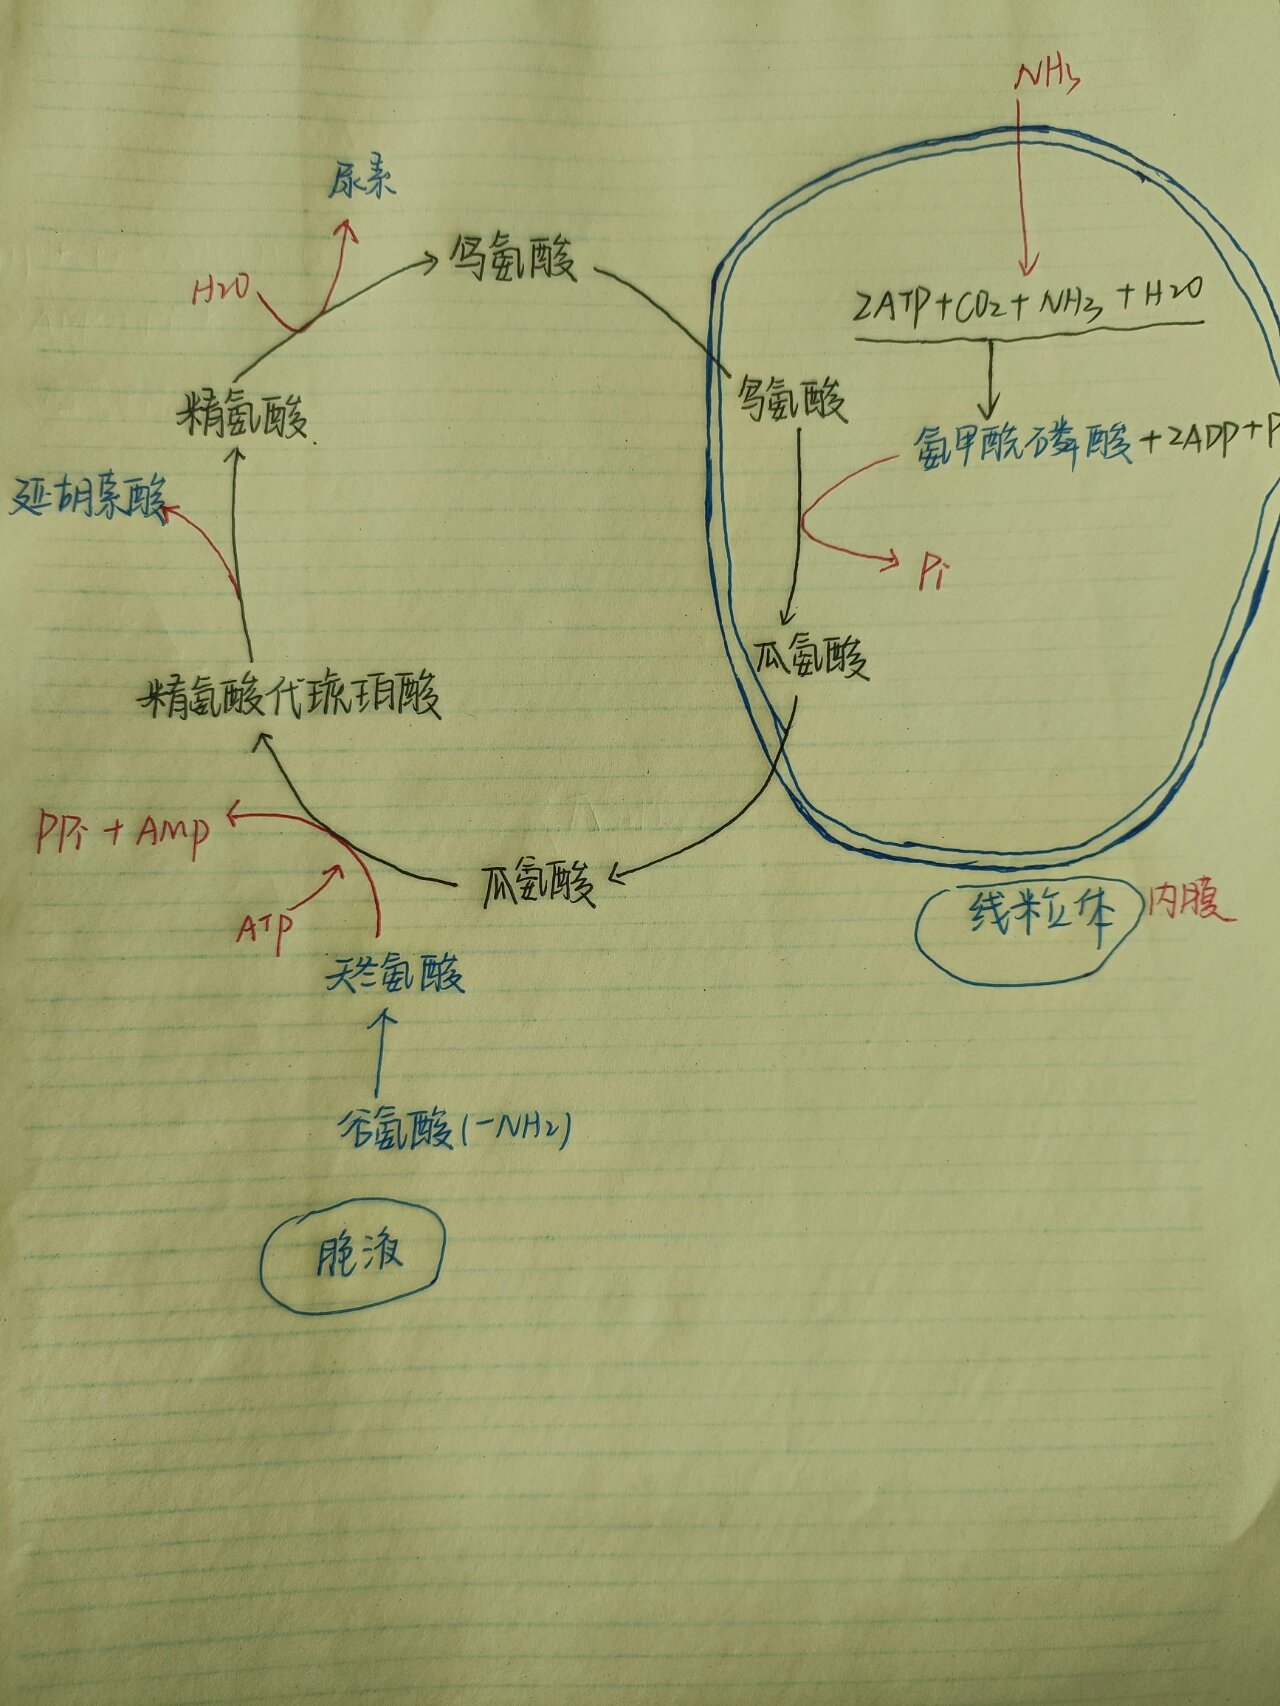 NH3
尿素
鸟氨酸
H2O
2ATP+CO2+NH3+H2O
精氨酸
鸟氨酸
氨甲酰磷酸+2ADP+P
延胡索酸
Pi
瓜氨酸
精氨酸代琥珀酸
PPi + AMP
瓜氨酸
线粒体 内膜
ATP
天冬氨酸
谷氨酸(-NH2)
胞液